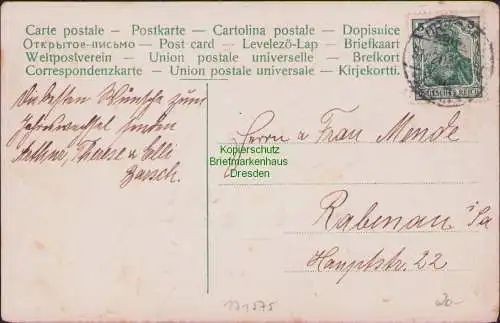 Carte postale – Postkarte – Cartolina postale – Dopisnice
Открытое-письмо – Post card – Levelező-Lap – Briefkaart
Weltpostverein – Union postale universelle – Brefkort
Correspondenzkarte – Union postale universale – Kirjekortti.
Die besten Wünsche zum
Jahreswechsel senden
Arthur, Therese u Elli
Herrn u Frau Mende
Rabenau i/Sa
Hauptstr. 22
DEUTSCHES REICH
Kopierschutz
Briefmarkenhaus
Dresden
171575
20-